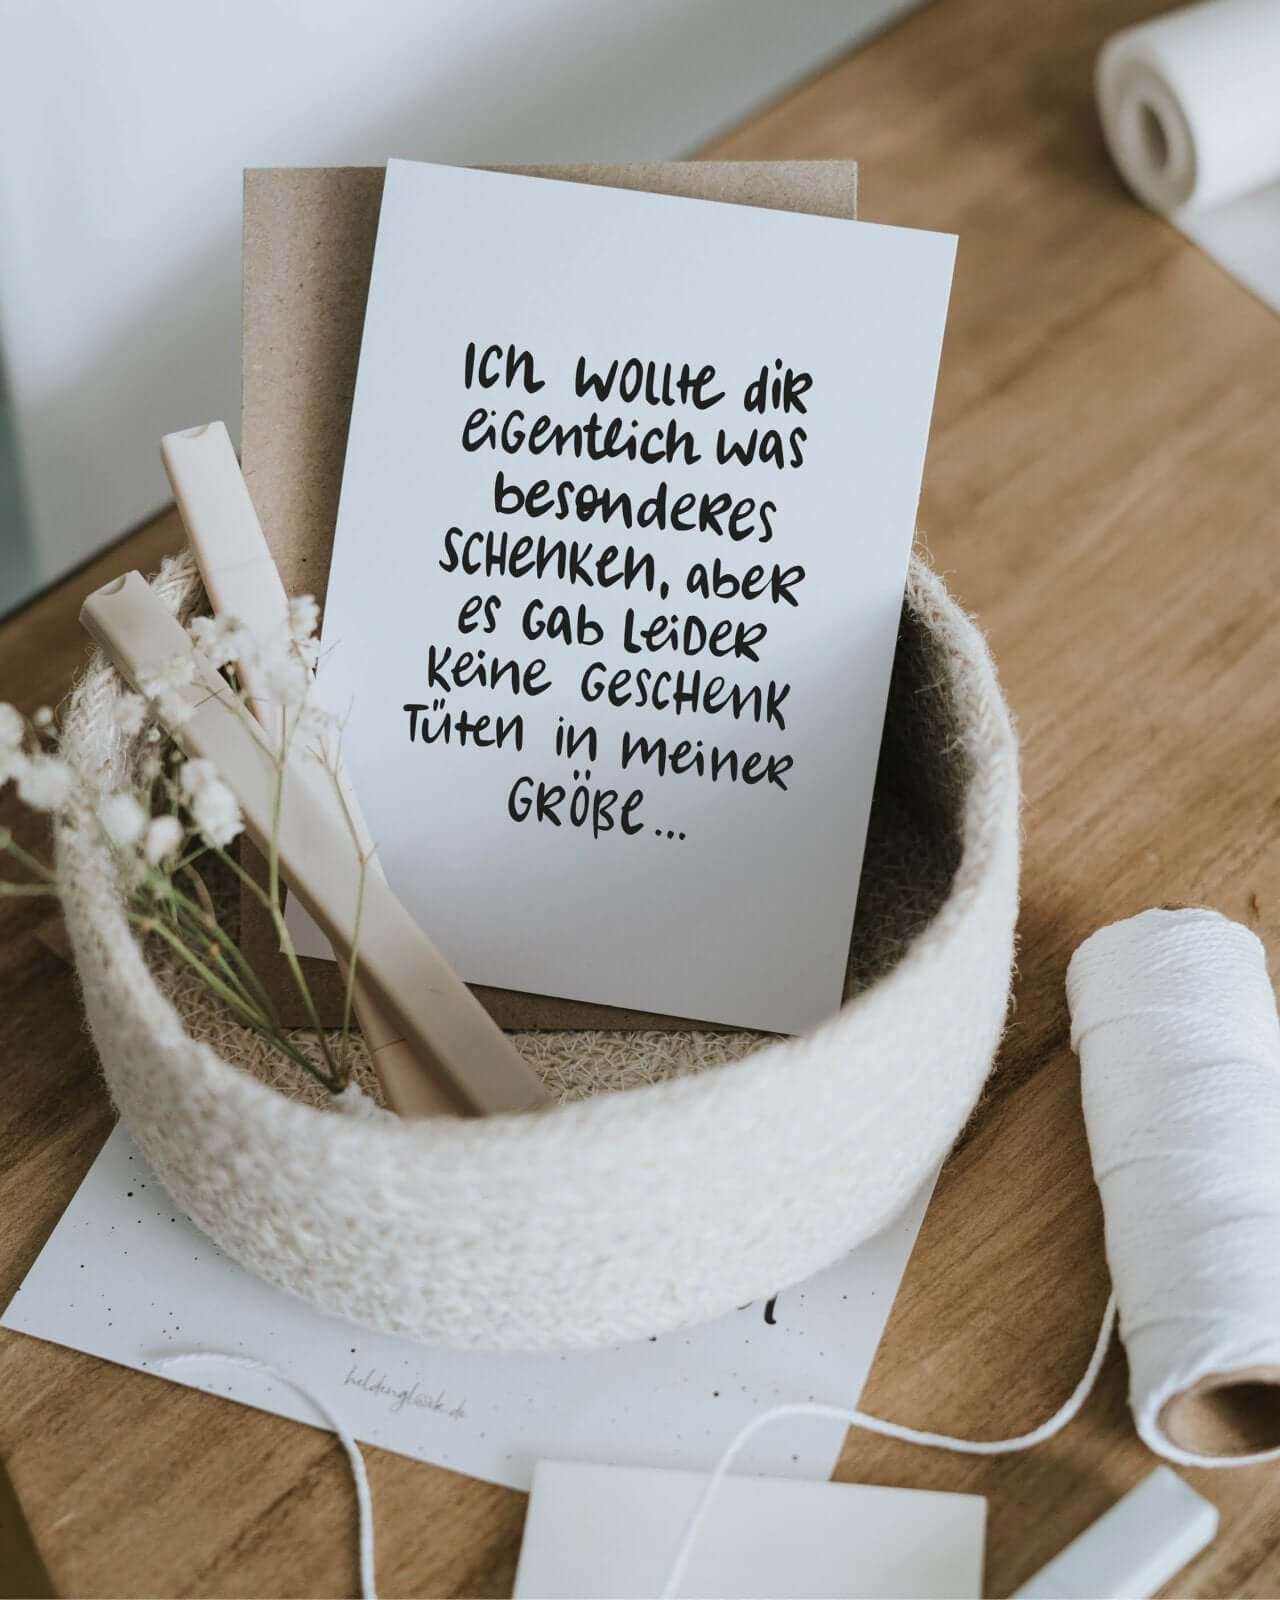 Ich wollte dir
eigentlich was
besonderes
schenken, aber
es gab leider
keine Geschenk
Tüten in meiner
Größe...
heldenglück.de